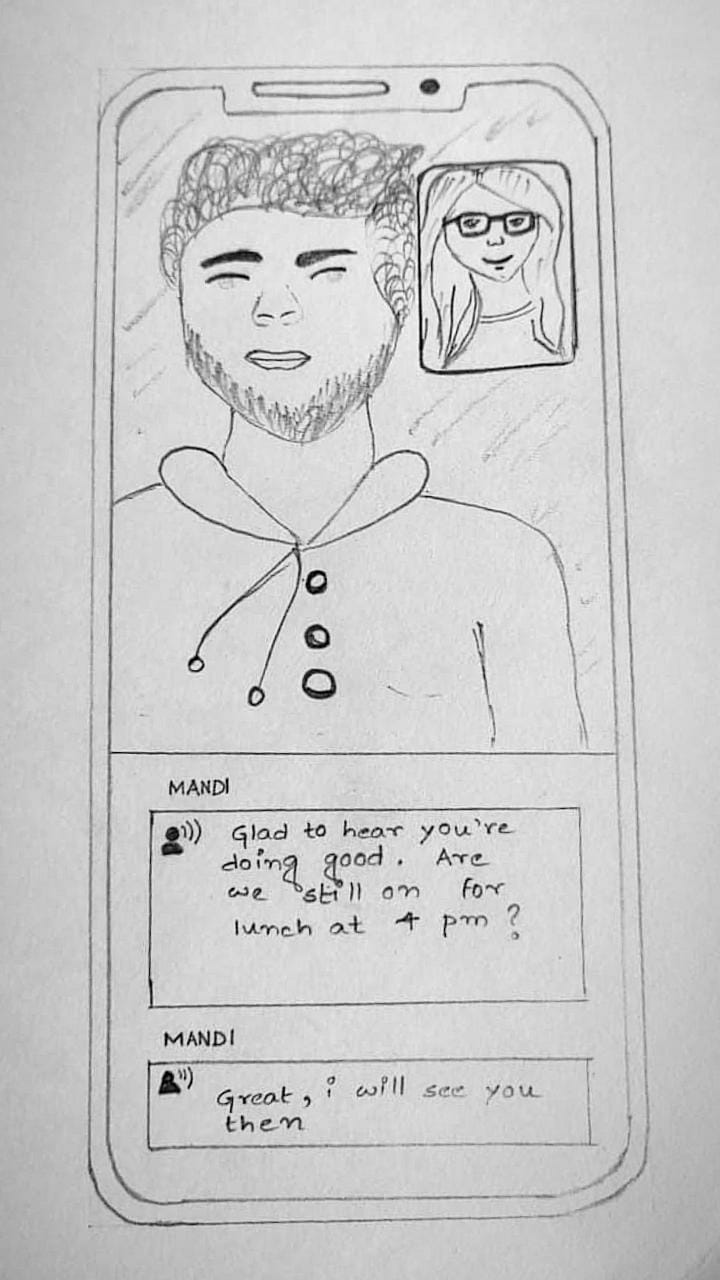 MANDI
Glad to hear you're
doing good. Are
we still on for
lunch at 4 pm?
MANDI
Great, i will see you
then